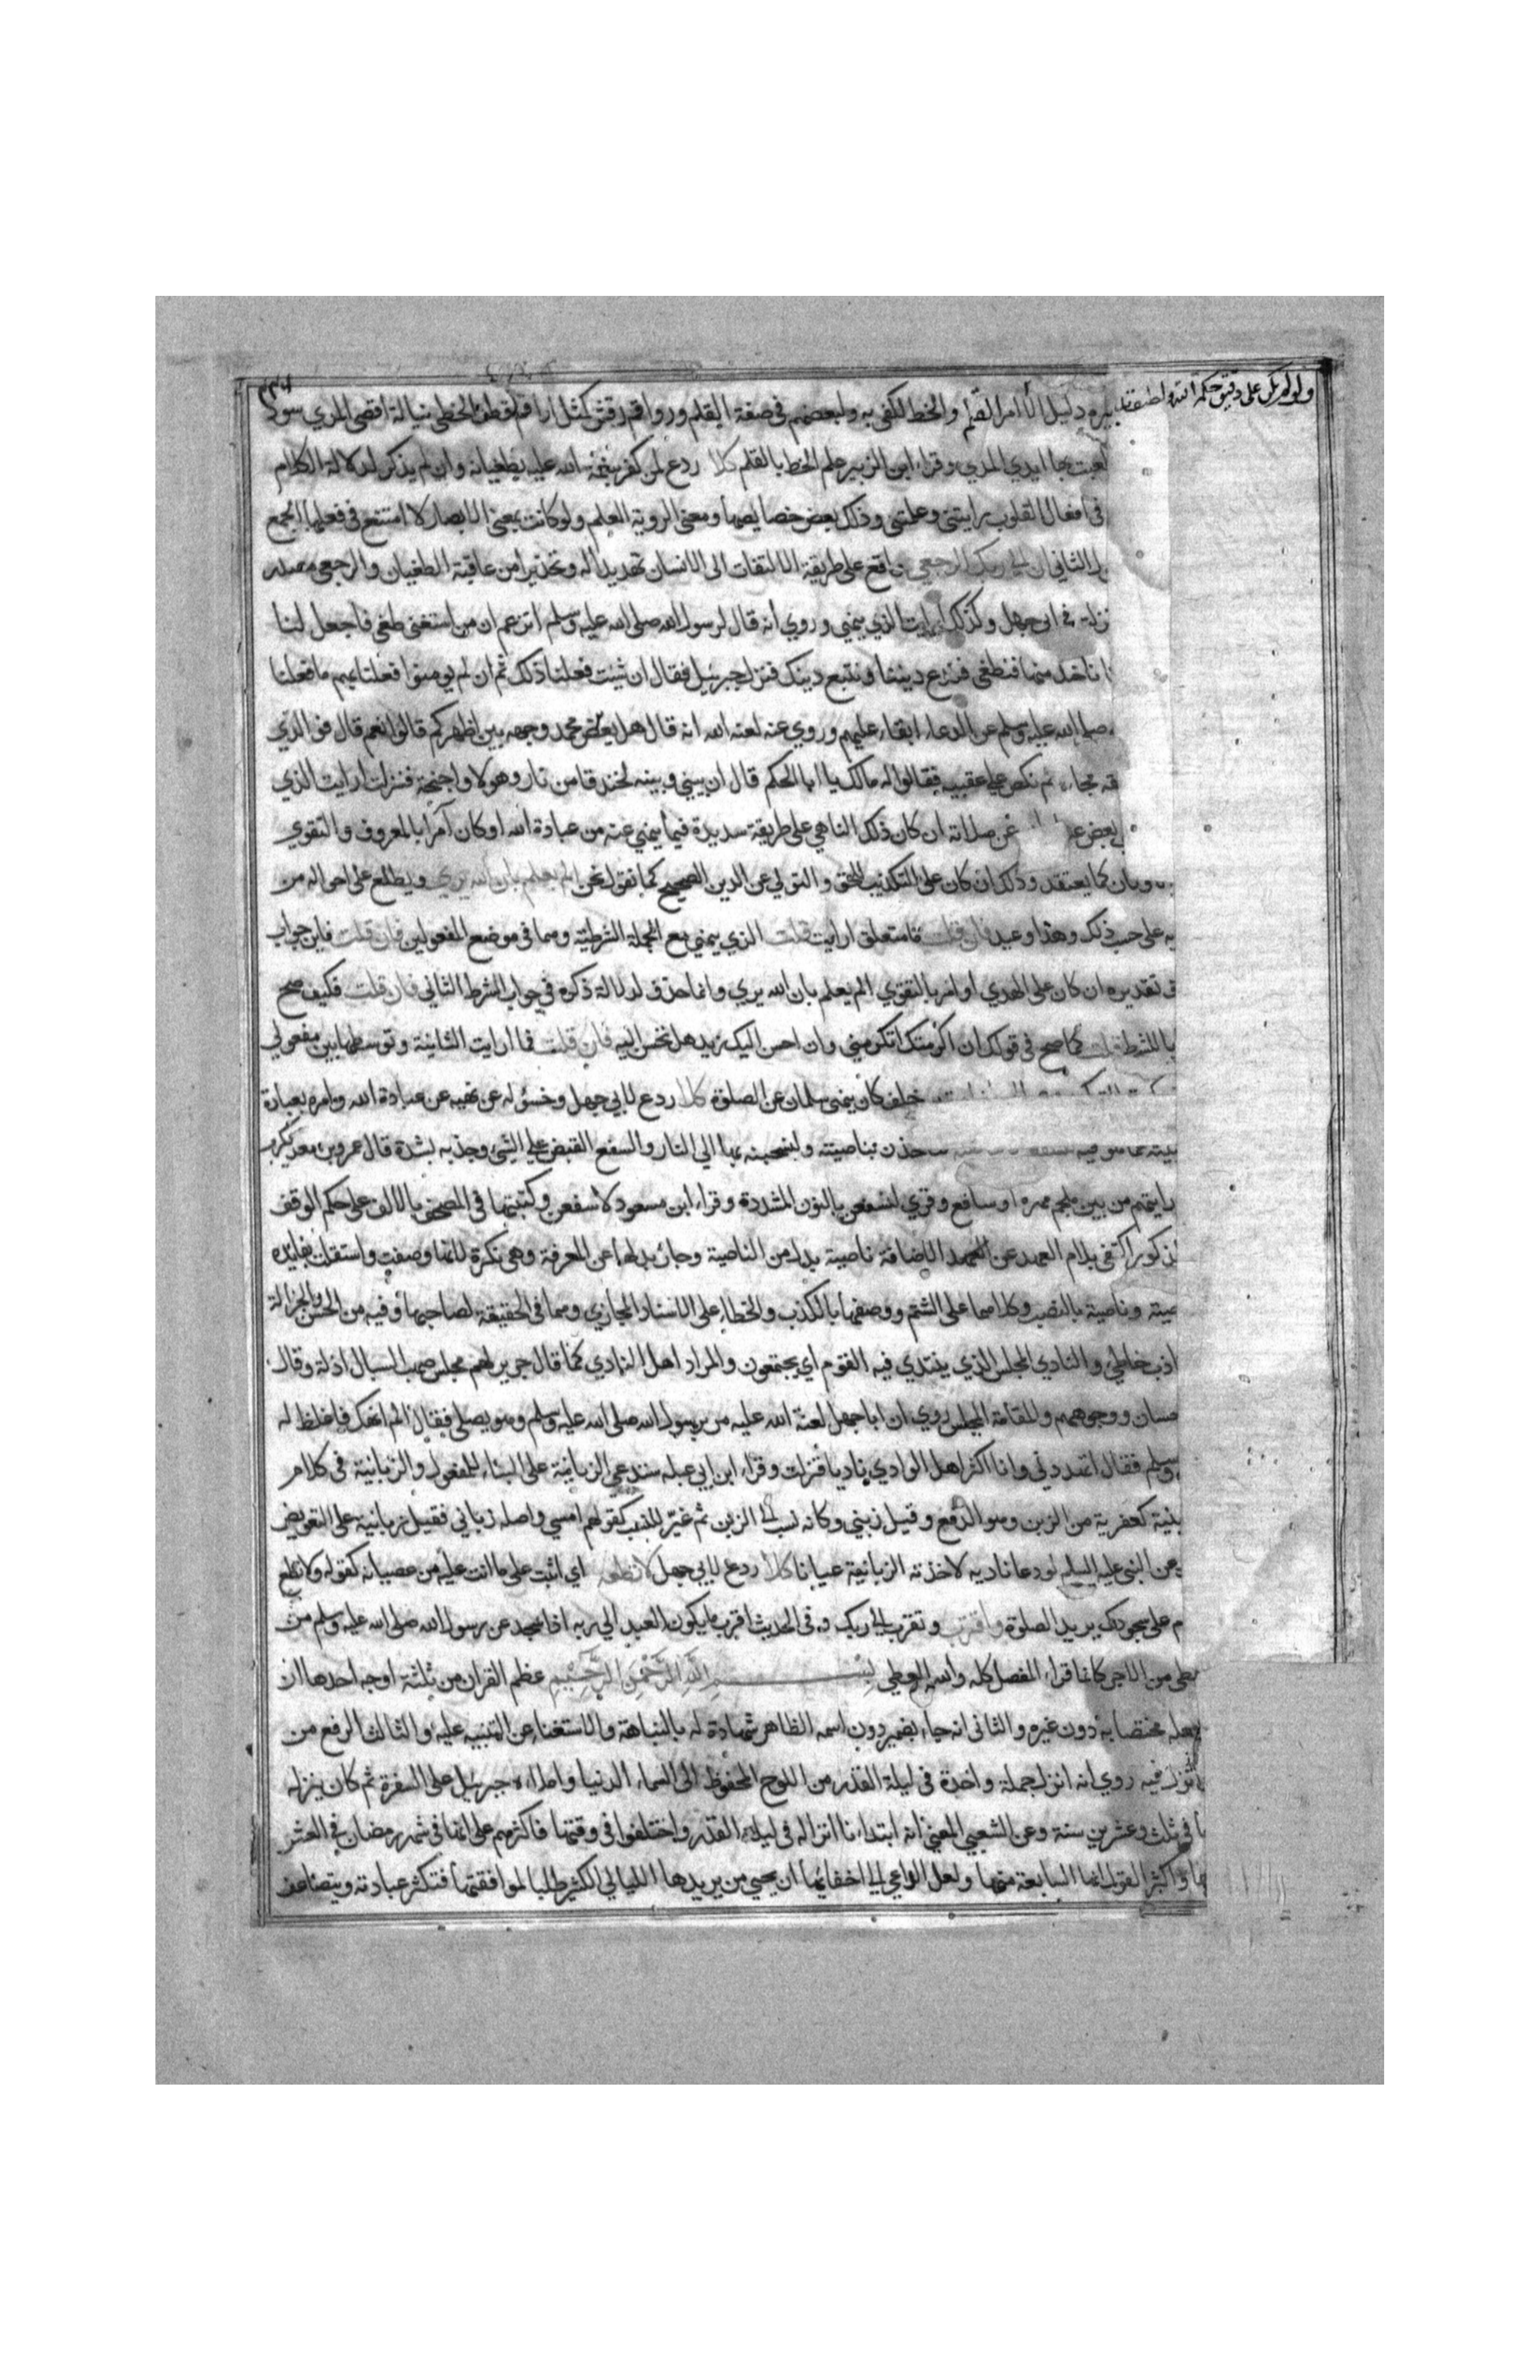 ولو لم يكن على دقيق حكمة الله ولطيف تدبيره دليل الا امر القلم والخط لكفى به ولبعضهم في صفة القلم ورواقم رقش كمثل اراقم قطف الخطى نيالة اقصى المدي سود
لعبت بها ايدي المدي وقراء ابن الزبير علم الخط بالقلم كلا ردع لمن كفر بنعمة الله عليه بطغيانه وان لم يذكر لدلالة الكلام
في افعال القلوب رايتني وعلمتني وذلك بعض خصايصها ومعنى الروية العلم ولو كانت بمعنى الابصار لا امتنع في فعلها الجمع
الثاني ان الى ربك الرجعى واقع على طريقة الالتفات الى الانسان تهديدا له وتحذيرا من عاقبة الطغيان والرجعى مصدر
نزلت في ابى جهل وكذلك ارايت الذي ينهى وروي انه قال لرسول الله صلى الله عليه وسلم اتزعم ان من استغنى طغى فاجعل لنا
ناخذ منها فنطغى فندع ديننا ونتبع دينك فنزل جبرئيل فقال ان شئت فعلنا ذلك ثم ان لم يومنوا فعلنا بهم ما فعلنا
صلى الله عليه وسلم عن الدعاء ابقاء عليهم وروي عنه لعنه الله انه قال هل يعفر محمد وجهه بين اظهركم قالوا نعم قال فو الذي
فجاءه ثم نكص على عقبيه فقالوا له مالك يا ابا الحكم قال ان بيني وبينه لخندقا من نار وهولا واجنحة فنزلت ارايت الذي
بعض عن صلاته ان كان ذلك الناهي على طريقة سديدة فيما ينهي عنه من عبادة الله او كان آمرا بالمعروف والتقوي
وثان كما يعتقد وذلك ان كان على التكذيب للحق والتولي عن الدين الصحيح كما نقول نحن الم يعلم بان الله يري ويطلع على احواله من
يه على حسب ذلك وهذا وعيد فان قلت ما متعلق ارايت قلت الذي ينهي مع الجملة الشرطية وهما في موضع المفعولين فان قلت فاين جواب
تقديره ان كان على الهدي او امر بالتقوي الم يعلم بان الله يري وانما حذف لدلالة ذكره في جواب الشرط الثاني فان قلت فكيف صح
با للشرط قلت كما صح في قولك ان اكرمتك اتكرمني وان احسن اليك زيد هل تحسن اليه فان قلت فما ارايت الثانية وتوسطها بين مفعولي
خلف كان ينهى سلمان عن الصلوة كلا ردع لابي جهل وخسؤ له عن نهيه عن عبادة الله وامره بعبادة
خذن بناصيته ولنسحبنه بها الي النار والسفع القبض علي الشئ وجذبه بشدة قال عمرو بن معديكرب
رايتهم من بين ملجم مهره او سافع وقري لنسفعن بالنون المشددة وقراء ابن مسعود لاسفعن وكتبتها في المصحف بالالف على حكم الوقف
المذكور اكتفى بلام العهد عن الاضافة ناصية بدل من الناصية وجاز بدلها عن المعرفة وهي نكرة لانها وصفت واستقلت بفايدة
وناصية بالنصب وكلاهما على الشتم ووصفها بالكذب والخطاء على الاسناد المجازي وهما في الحقيقة لصاحبها وفيه من الحسن والجزالة
كاذب خاطئ والنادي المجلس الذي ينتدي فيه القوم اي يجتمعون والمراد اهل النادي كما قال جرير لهم مجلس صهب السبال اذلة وقال
حسان ووجوههم والمقامة المجلس روي ان ابا جهل لعنة الله عليه مر برسول الله صلى الله عليه وسلم وهو يصلي فقال الم انهك فاغلظ له
وسلم فقال اتهددني وانا اكثر اهل الوادي ناديا فنزلت وقراء ابن ابي عبله سندعي الزبانية على البناء للمفعول والزبانية في كلام
بنية كعفرية من الزبن وهو الدفع وقيل زبني وكانه نسب الى الزبن ثم غير للنسب كقولهم امسي واصله زباني فقيل زبانية على التعويض
عن النبي عليه السلم لو دعا ناديه لاخذته الزبانية عيانا كلا ردع لابي جهل لا تطعه اي اثبت على ما انت عليه من عصيانه كقوله ولا تطع
م على سجودك يريد الصلوة واقترب وتقرب الى ربك وفي الحديث اقرب ما يكون العبد الي ربه اذا سجد عن رسول الله صلى الله عليه وسلم من
عطى من الاجر كانما قراء المفصل كله والله المعطي بسم الله الرحمن الرحيم عظم القران من ثلثة اوجه احدها ان
جعله مختصا به دون غيره والثاني انه جاء بضميره دون اسمه الظاهر شهادة له بالنباهة والاستغناء عن التنبيه عليه والثالث الرفع من
انزل فيه روي انه انزل جملة واحدة في ليلة القدر من اللوح المحفوظ الى السماء الدنيا واملاءه جبرئيل على السفرة ثم كان ينزله
في ثلث وعشرين سنة وعن الشعبي المعنى انه ابتداءنا انزاله في ليلة القدر واختلفوا في وقتها فاكثرهم على انها في شهر رمضان في العشر
واكثر القول انها السابعة منها ولعل الداعي الى اخفائها ان يحيي من يريدها الليالي الكثيرة طلبا لموافقتها فتكثر عبادته ويتضاعف